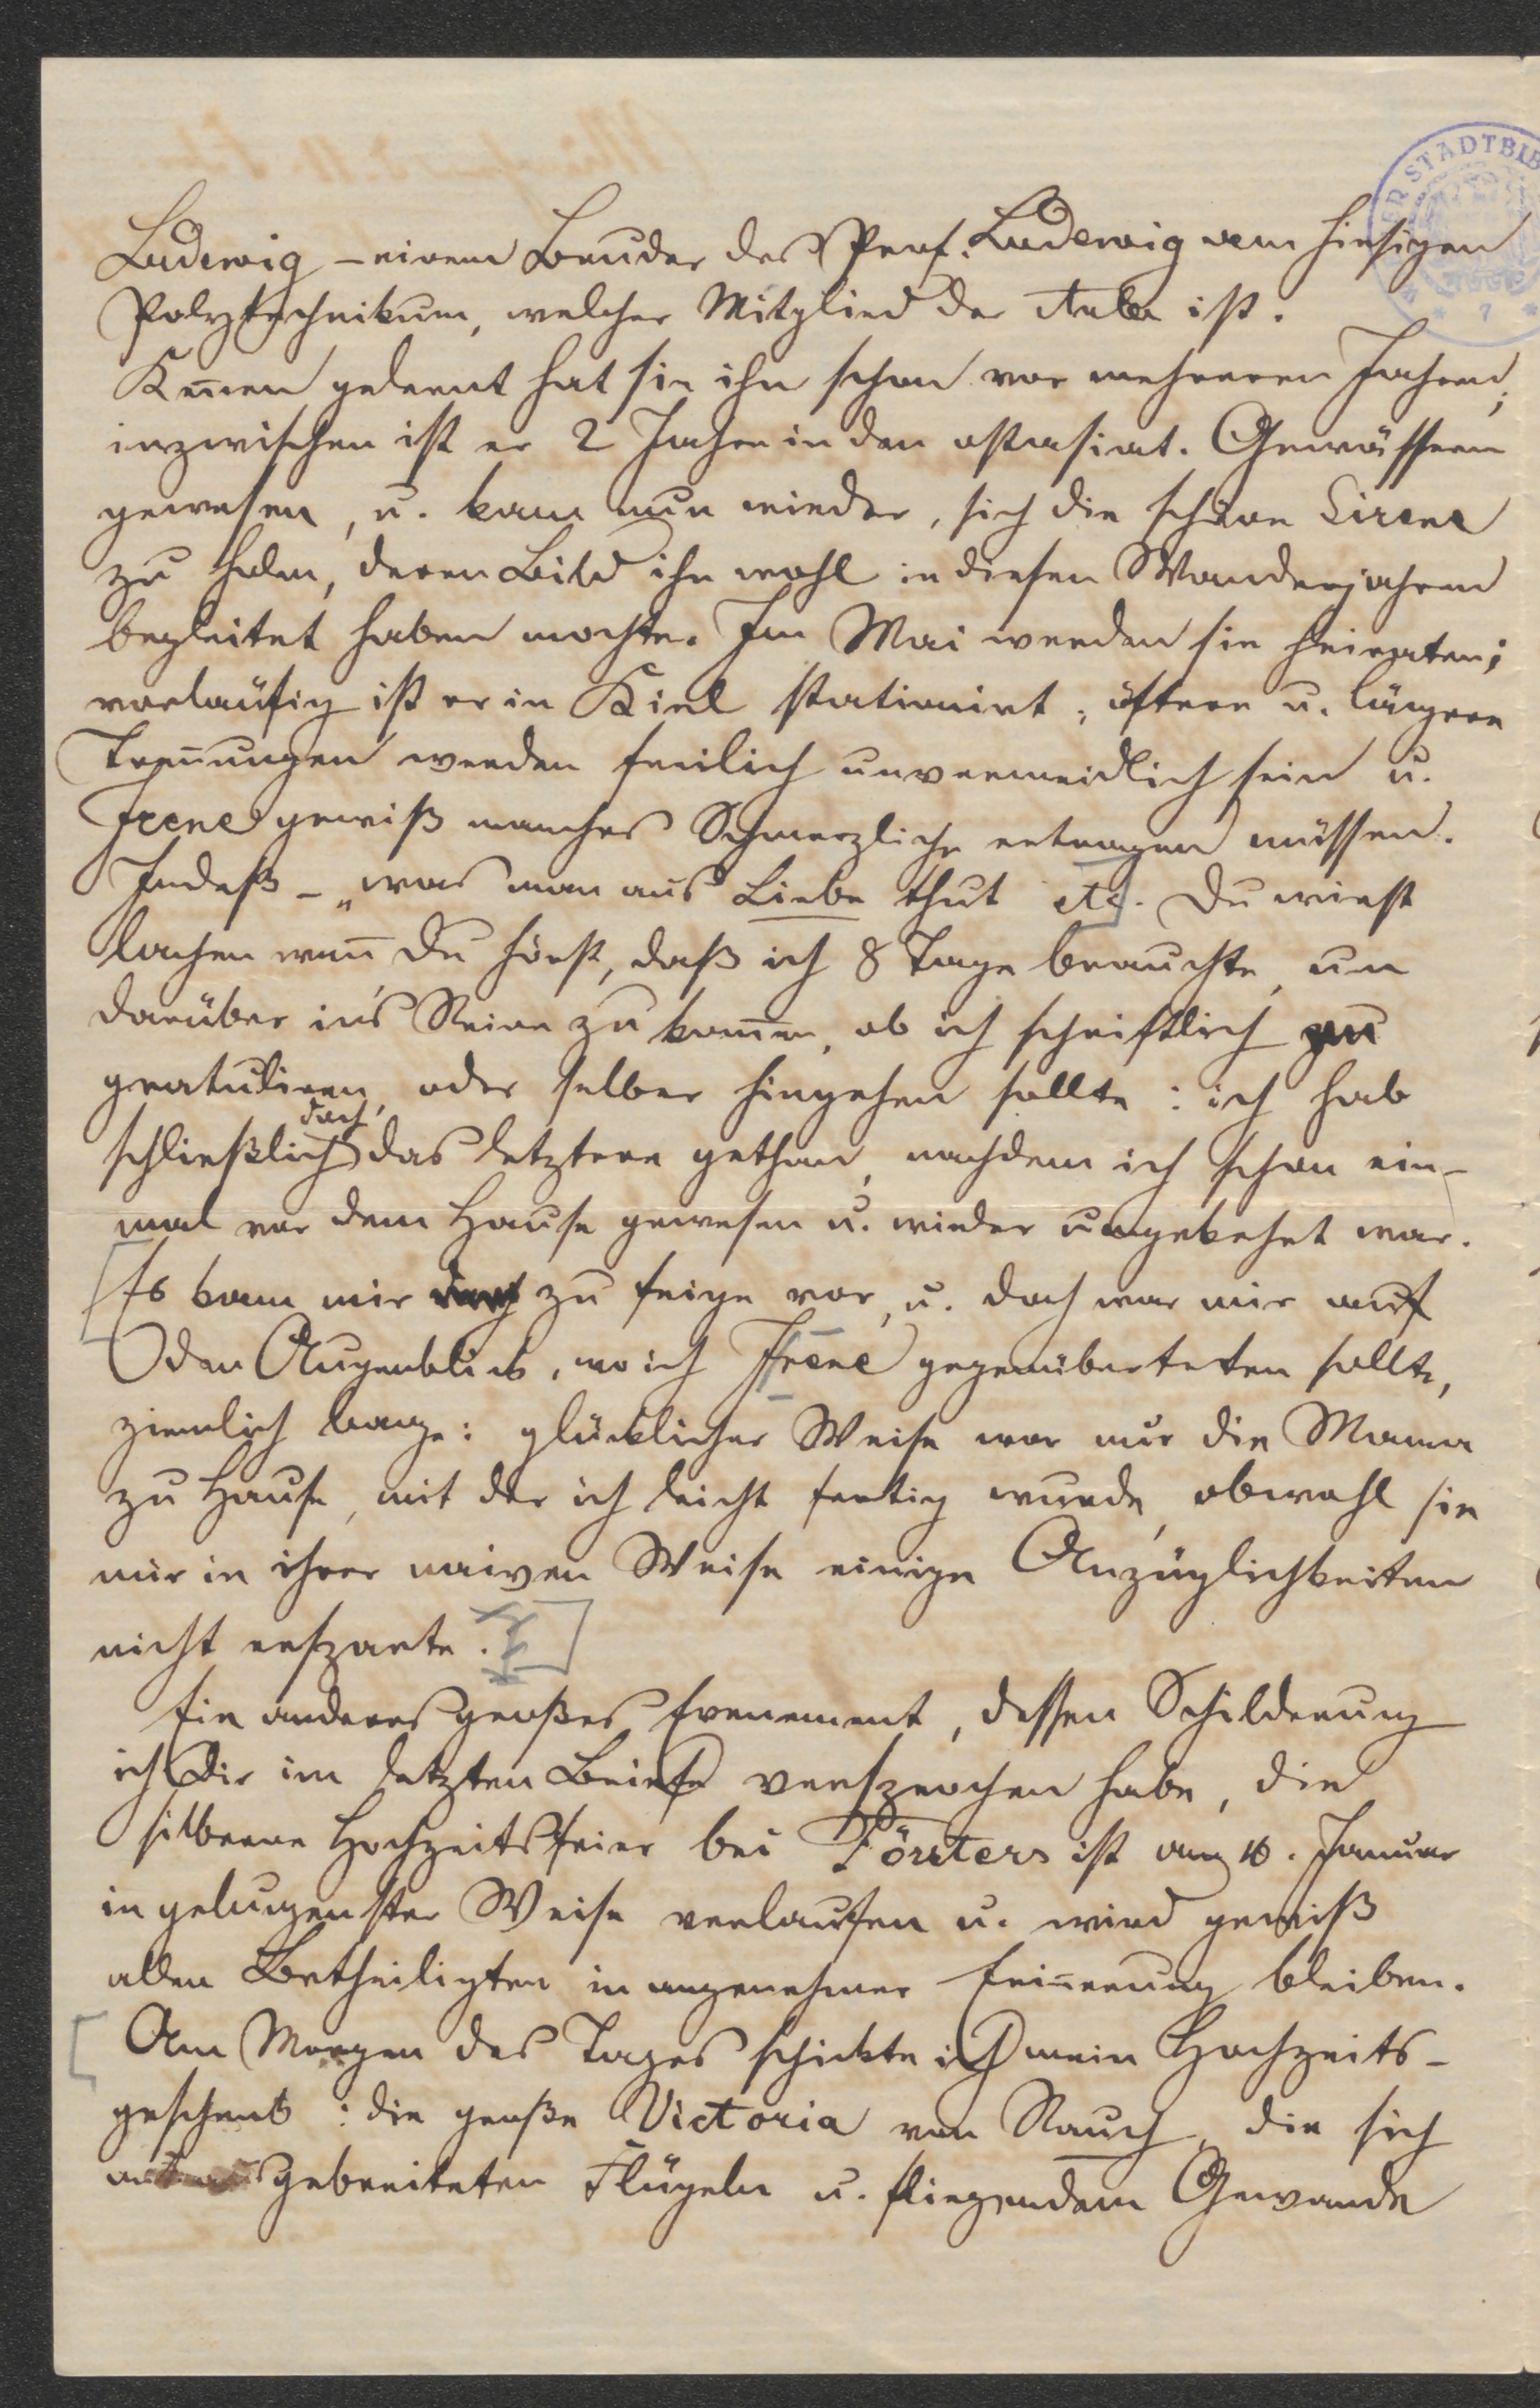 Ludewig – einem Bruder des Prof. Ludewig vom hiesigen
Polytechnikum, welcher Mitglied der Aula ist.
Keñen gelernt hat sie ihn schon vor mehreren Jahren;
inzwischen ist er 2 Jahre in den ostasiat. Gewässern
gewesen, u. kam nun wieder, sich die schöne Sirene
zu holen, deren Bild ihn wohl in diesen Wanderjahren
begleitet haben mochte. Im Mai werden sie heiraten;
vorläufig ist er in Kiel stationirt, öftere u. längere
Treñungen werden freilich unvermeidlich sein u.
Irene gewiß manches Schmerzliche ertragen müssen.
Indeß – „was man aus Liebe thut etc. Du wirst
lachen weñ Du hörst, daß ich 8 Tage brauchte, um
darüber in's Reine zu kom̄en, ob ich schriftlich zu
gratuliren, oder selber hingehen sollte: ich hab
schließlich doch das letztere gethan, nachdem ich schon ein-
mal vor dem Hause gewesen u. wieder umgekehrt war.
Es kam mir zu feige vor, u. doch war mir auf
den Augenblick, wo ich Irene gegenübertreten sollte,
ziemlich bange: glücklicher Weise war nur die Mama
zu Hause, mit der ich leicht fertig wurde, obwohl sie
mir in ihrer naiven Weise einige Anzüglichkeiten
nicht ersparte.
Ein anderes großes Evenement, dessen Schilderung
ich Dir im letzten Briefe versprochen habe, die
silberne Hochzeitsfeier bei Försters ist am 16. Januar
in gelungenster Weise verlaufen u. wird gewiß
allen Betheiligten in angenehmer Eriñerung bleiben.
Am Morgen des Tages schickte ich mein Hochzeits-
geschenk: die große Victoria von Rauch, die sich
mit ausgebreiteten Flügeln u. fliegendem Gewande
STADTBIB
7